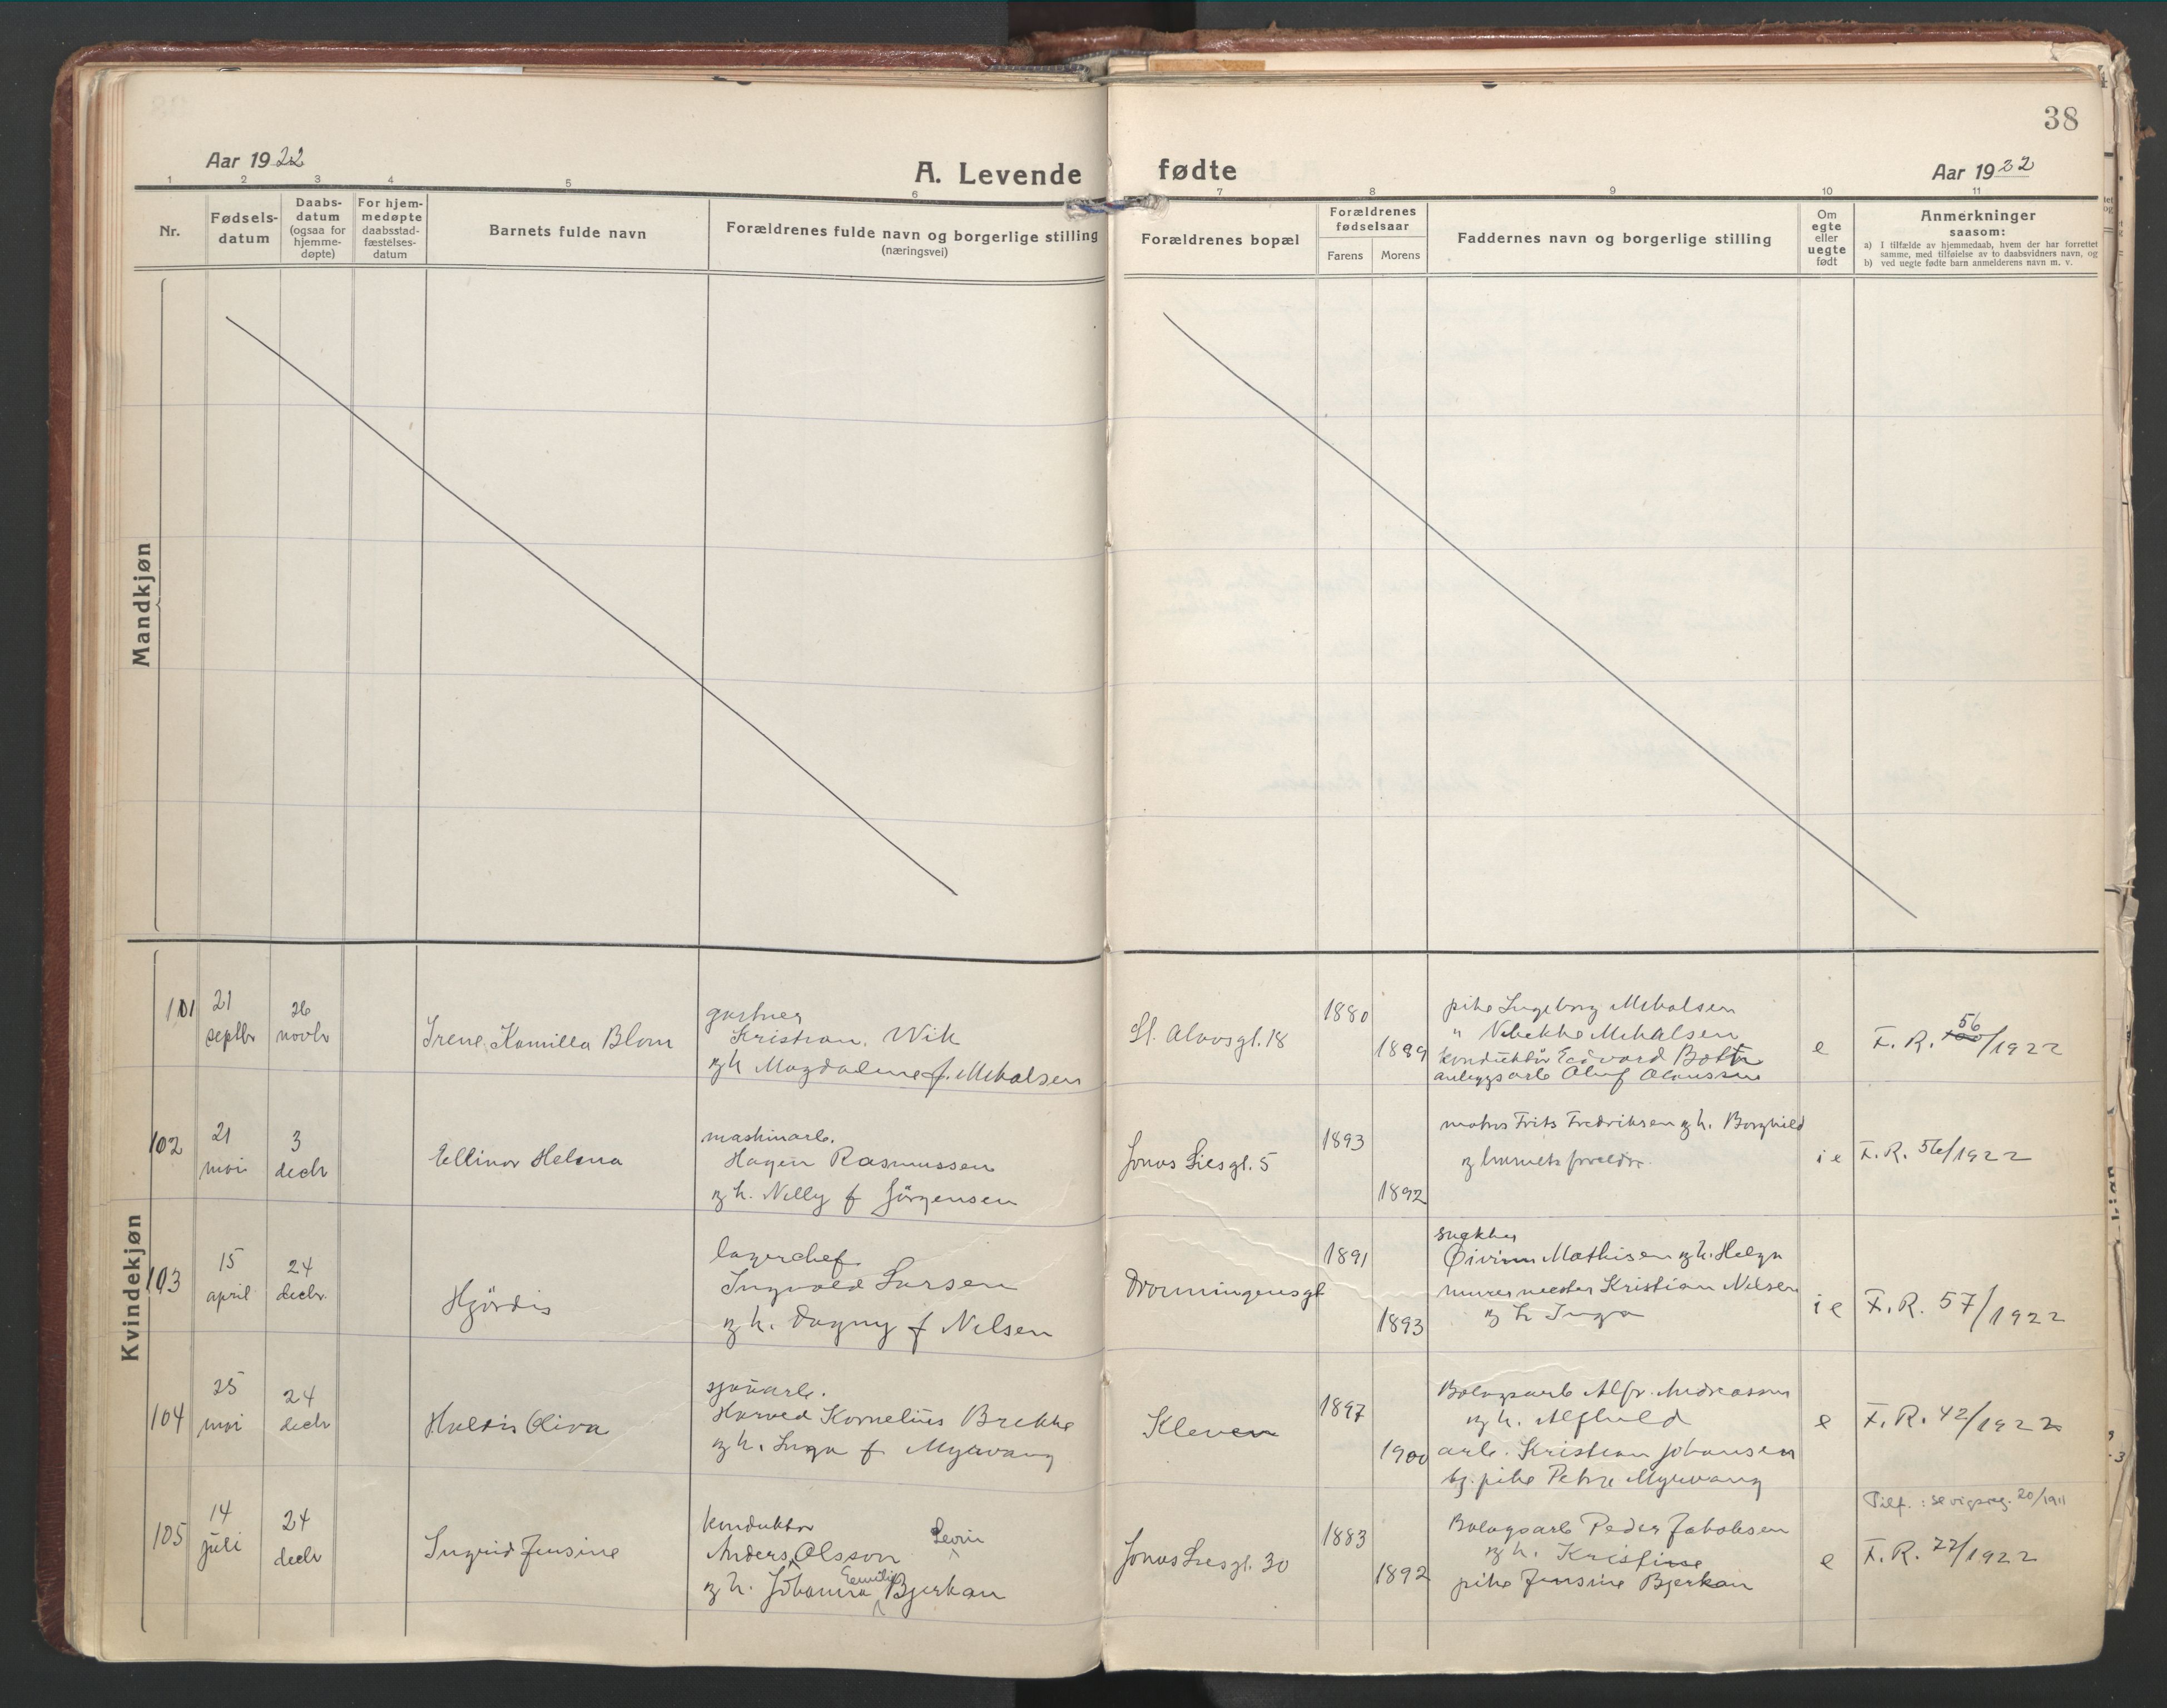 38
Aar 1922
A. Levende
fødte
Aar 1922
1 2 3 4 5 6 7 8 9 10 11
Nr.
Fødsels-
datum
Daabs-
datum
(ogsaa for
hjemme-
døpte)
For hjem-
medøpte
daabsstad-
fæstelses-
datum
Barnets fulde navn
Forældrenes fulde navn og borgerlige stilling
(næringsvei)
Forældrenes bopæl
Forældrenes
fødselsaar
Farens Morens
Faddernes navn og borgerlige stilling
Om
egte
eller
uegte
født
Anmerkninger
saasom:
a) I tilfælde av hjemmedaab, hvem der har forrettet
samme, med tilføielse av to daabsvidners navn, og
b) ved uegte fødte barn anmelderens navn m. v.
Mandkjøn
Kvindekjøn
101
21
septbr
26
novbr
Irene Kamilla Blom
gartner
Kristian Wik
og h Magdalene f. Mikalsen
St. Olavsgt. 18
1880
1899
pike Ingeborg Mikalsen
" Vibekke Mikalsen
konduktør Edvard Botn
anleggsarb Oluf Olaussen
e
F. R. 56/1922
102
21
mai
3
decbr
Ellinor Helena
maskinarb.
Hagen Rasmussen
og h. Nelly f Jörgensen
Jonas Liesgt. 5
1893
1892
matros Frits Fredriksen og h. Borghild
og barnets foreldre
i e
F. R. 56/1922
103
15
april
24
decbr.
Hjördis
lagerchef
Ingvald Larsen
og h. Dagny f Nilsen
Dronningensgt
1891
1893
snekker
Øivinn Mathisen og h. Helga
murermester Kristian Nilsen
og h Inga
i e
F. R. 57/1922
104
25
mai
24
decbr
Haldis Oliva
sjauarb.
Harald Kornelius Brekke
og h. Inga f Myrvang
Kleven
1897
1900
Bolagsarb Alfr. Andreassen
og h. Alfhild
arb. Kristian Johansen
og pike Petra Myrvang
e
F. R. 42/1922
105
14
juli
24
decbr
Ingrid Jensine
konduktør
Anders Olsson Levin
og h. Johanna Emilie Bjerkan
Jonas Liesgt. 30
1883
1892
Bolagsarb Peder Jakobsen
og h. Kristine
pike Jensine Bjerkan
e
Tilf.: se vigselreg. 20/1911
F. R. 77/1922